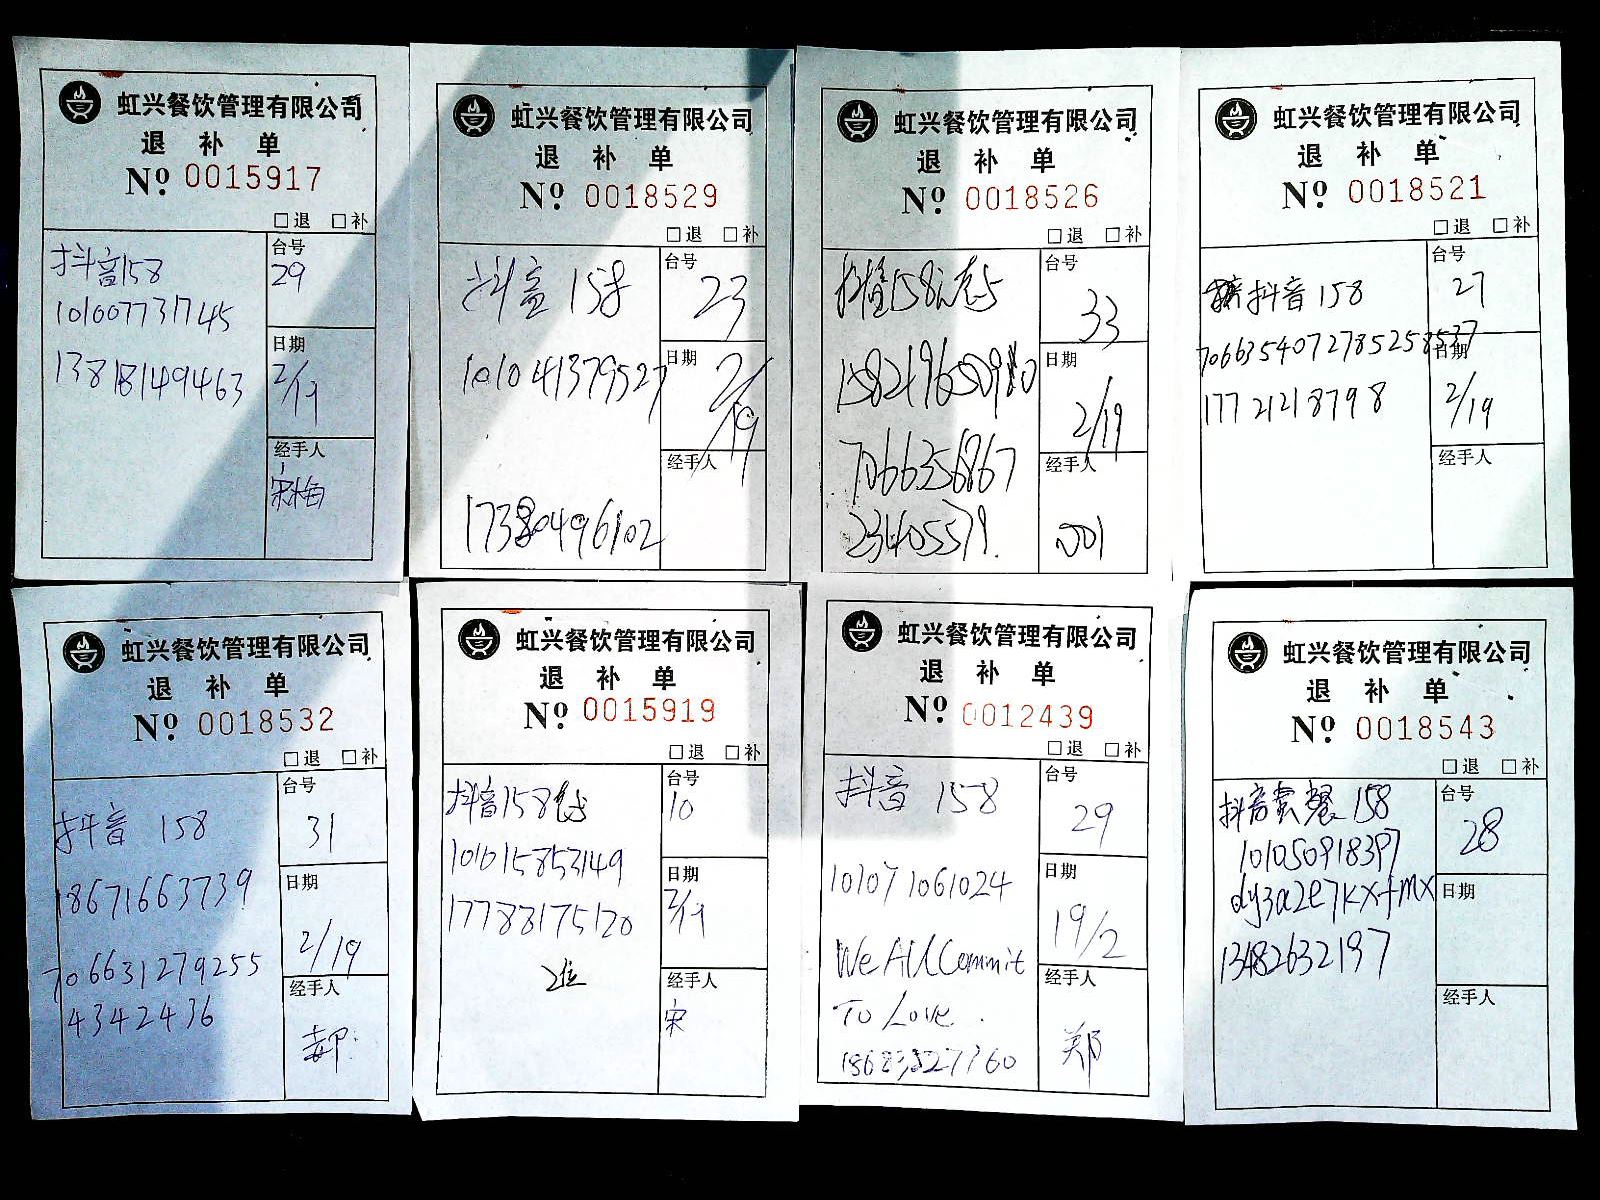 虹兴餐饮管理有限公司
退 补 单
Nº 0015917
□退 □补
抖音158
101007731745
13818149463
台号
29
日期
2/19
经手人
宋梅
虹兴餐饮管理有限公司
退 补 单
Nº 0018529
□退 □补
抖音 158
101041379527
17380496102
台号
23
日期
2/19
经手人
虹兴餐饮管理有限公司
退 补 单
Nº 0018526
□退 □补
7066356867
23405579.
台号
33
日期
2/19
经手人
001
虹兴餐饮管理有限公司
退 补 单
Nº 0018521
□退 □补
抖音 158
7066354072785258537
17721218798
台号
27
日期
2/19
经手人
虹兴餐饮管理有限公司
退 补 单
Nº 0018532
□退 □补
抖音 158
18671663739
706631279255
4342436
台号
31
日期
2/19
经手人
虹兴餐饮管理有限公司
退 补 单
Nº 0015919
□退 □补
抖音158
101015853149
17788175120
2位
台号
10
日期
2/19
经手人
宋
虹兴餐饮管理有限公司
退 补 单
Nº 0012439
□退 □补
抖音 158
101071061024
We All Commit
To Love.
台号
29
日期
19/2
经手人
郑
虹兴餐饮管理有限公司
退 补 单
Nº 0018543
□退 □补
抖音套餐 158
101050918397
dy3a2e7kx+mx
13482632197
台号
28
日期
经手人